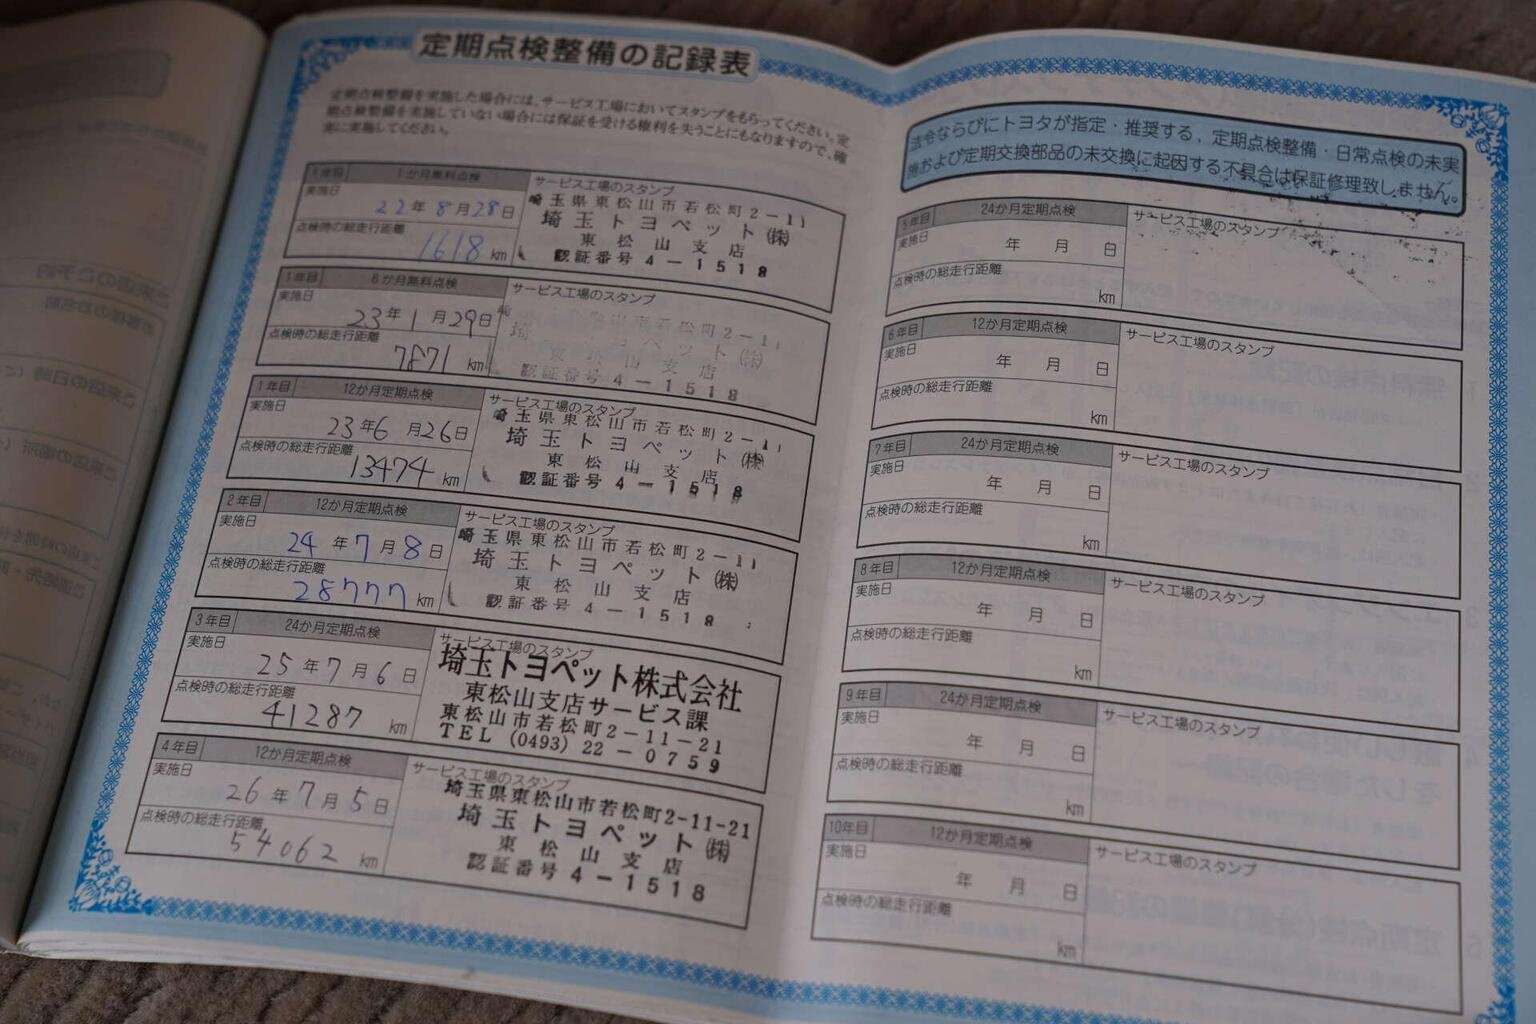 定期点検整備の記録表
定期点検整備を実施した場合には、サービス工場においてスタンプをもらってください。定
期点検整備を実施していない場合には保証を受ける権利を失うことにもなりますので、確
実に実施してください。
1年目 1か月無料点検 サービス工場のスタンプ
実施日 22年8月28日
点検時の総走行距離
1618 km
埼玉県東松山市若松町2-11
埼玉トヨペット(株)
東松山支店
認証番号4-1518
1年目 6か月無料点検 サービス工場のスタンプ
実施日
23年1月29日
点検時の総走行距離
7871 km
埼玉県東松山市若松町2-11
埼玉トヨペット(株)
東松山支店
認証番号4-1518
1年目 12か月定期点検 サービス工場のスタンプ
実施日
23年6月26日
点検時の総走行距離
13474 km
埼玉県東松山市若松町2-11
埼玉トヨペット(株)
東松山支店
認証番号4-1518
2年目 12か月定期点検 サービス工場のスタンプ
実施日
24年7月8日
点検時の総走行距離
28777 km
埼玉県東松山市若松町2-11
埼玉トヨペット(株)
東松山支店
認証番号4-1518
3年目 24か月定期点検 サービス工場のスタンプ
実施日
25年7月6日
点検時の総走行距離
41287 km
埼玉トヨペット株式会社
東松山支店サービス課
東松山市若松町2-11-21
TEL (0493) 22-0759
4年目 12か月定期点検 サービス工場のスタンプ
実施日
26年7月5日
点検時の総走行距離
54062 km
埼玉県東松山市若松町2-11-21
埼玉トヨペット(株)
東松山支店
認証番号4-1518
法令ならびにトヨタが指定・推奨する、定期点検整備・日常点検の未実
施および定期交換部品の未交換に起因する不具合は保証修理致しません。
5年目 24か月定期点検 サービス工場のスタンプ
実施日
年 月 日
点検時の総走行距離
km
6年目 12か月定期点検 サービス工場のスタンプ
実施日
年 月 日
点検時の総走行距離
km
7年目 24か月定期点検 サービス工場のスタンプ
実施日
年 月 日
点検時の総走行距離
km
8年目 12か月定期点検 サービス工場のスタンプ
実施日
年 月 日
点検時の総走行距離
km
9年目 24か月定期点検 サービス工場のスタンプ
実施日
年 月 日
点検時の総走行距離
km
10年目 12か月定期点検 サービス工場のスタンプ
実施日
年 月 日
点検時の総走行距離
km